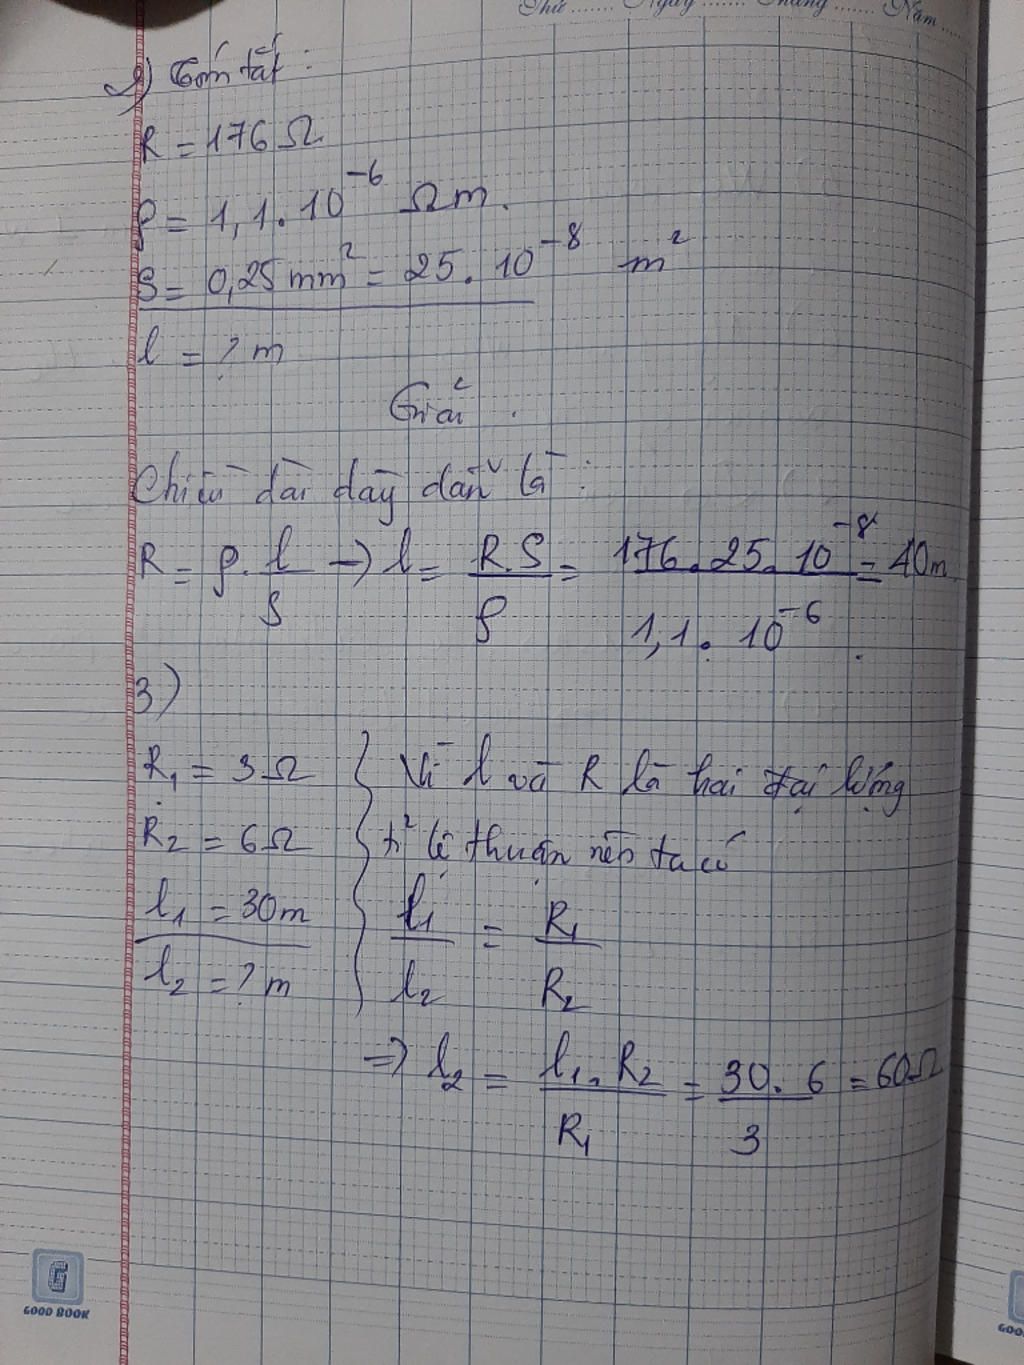 Thứ ....... Ngày ....... Tháng ....... Năm ....
2) Tóm tắt :
R = 176 Ω
ρ = 1,1 . 10⁻⁶ Ωm.
S = 0,25 mm² = 25 . 10⁻⁸ m²
l = ? m
Giải .
Chiều dài dây dẫn là :
R = ρ . l/S → l = R.S/ρ = 176 . 25 . 10⁻⁸ / 1,1 . 10⁻⁶ = 40m
3)
R₁ = 3Ω
R₂ = 6Ω
l₁ = 30m
l₂ = ? m
Vì l và R là hai đại lượng
tỉ lệ thuận nên ta có
l₁/l₂ = R₁/R₂
=> l₂ = l₁ . R₂ / R₁ = 30 . 6 / 3 = 60Ω
G
GOOD BOOK
GOO